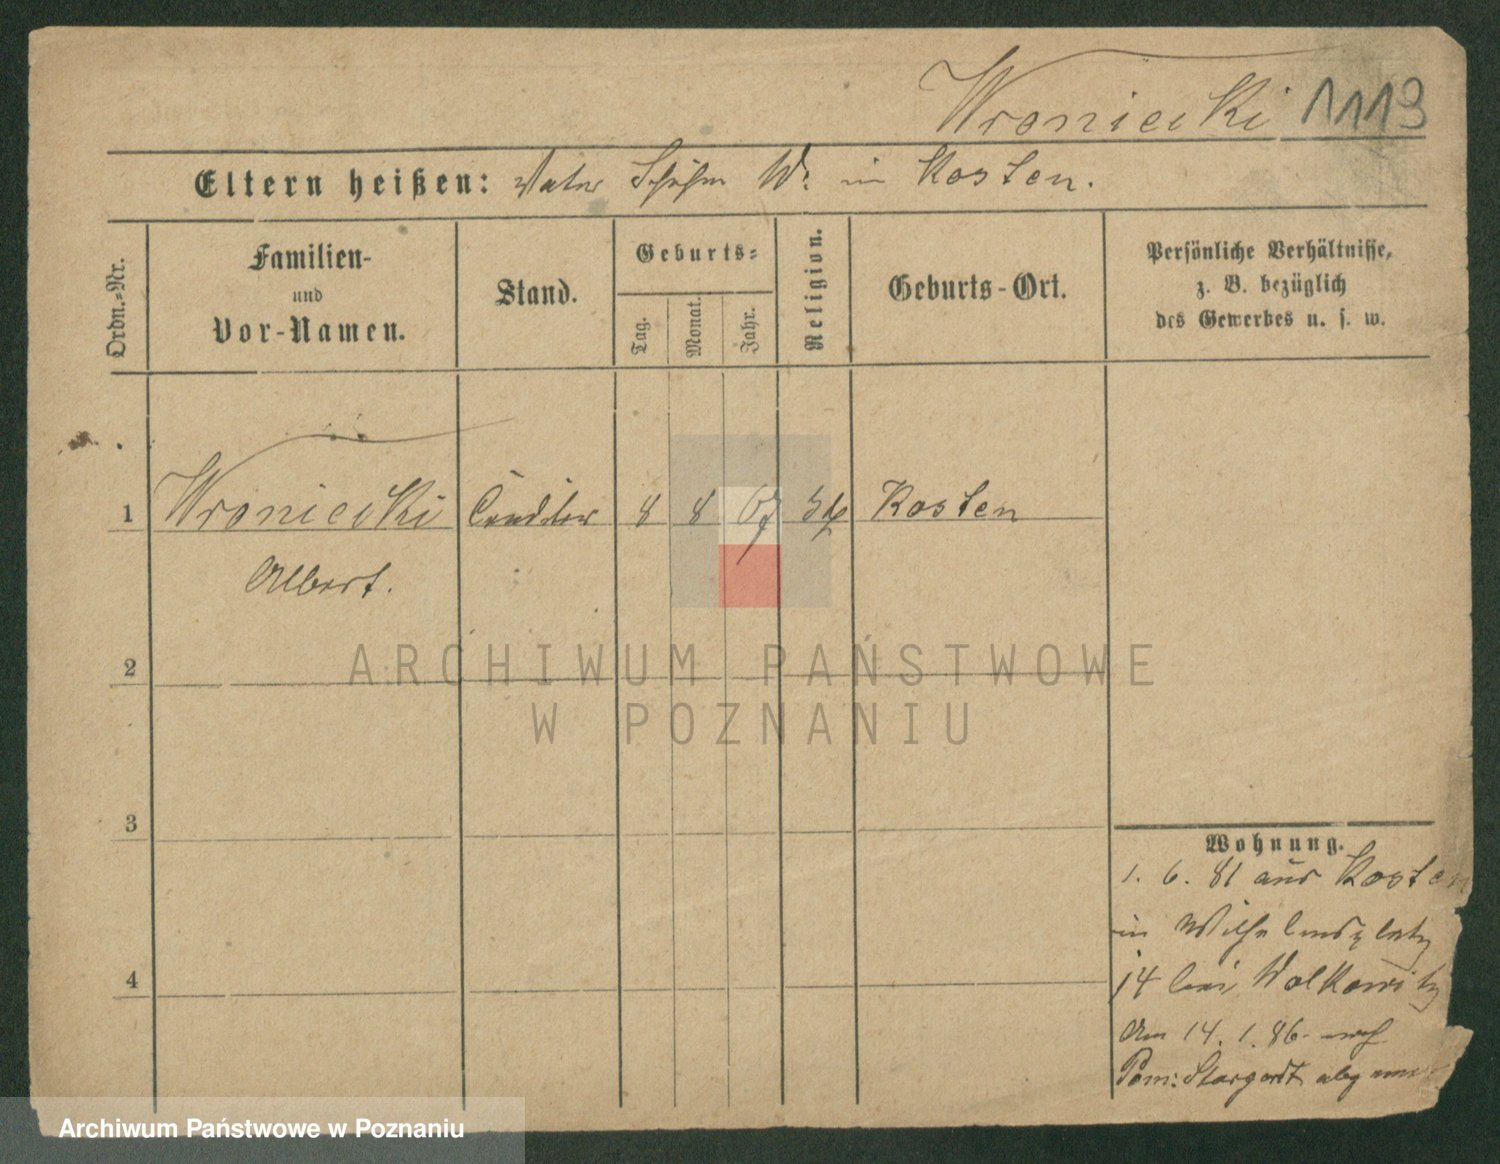 Wroniecki 1113
Eltern heißen: Vater W. in Kosten.
Ordn.-Nr.
Familien-
und
Vor-Namen.
Stand.
Geburts-
Tag.
Monat.
Jahr.
Religion.
Geburts-Ort.
Persönliche Verhältnisse,
z. B. bezüglich
des Gewerbes u. s. w.
1 Wroniecki Conditor 8 8 67 Kosten
Albert.
2
3
4
Wohnung.
1. 6. 81 aus Kosten
in Wilhelmsplatz
14 bei Wolkowitz
Am 14. 1. 86. nach
Pom: Stargardt
ARCHIWUM PAŃSTWOWE
W POZNANIU
Archiwum Państwowe w Poznaniu